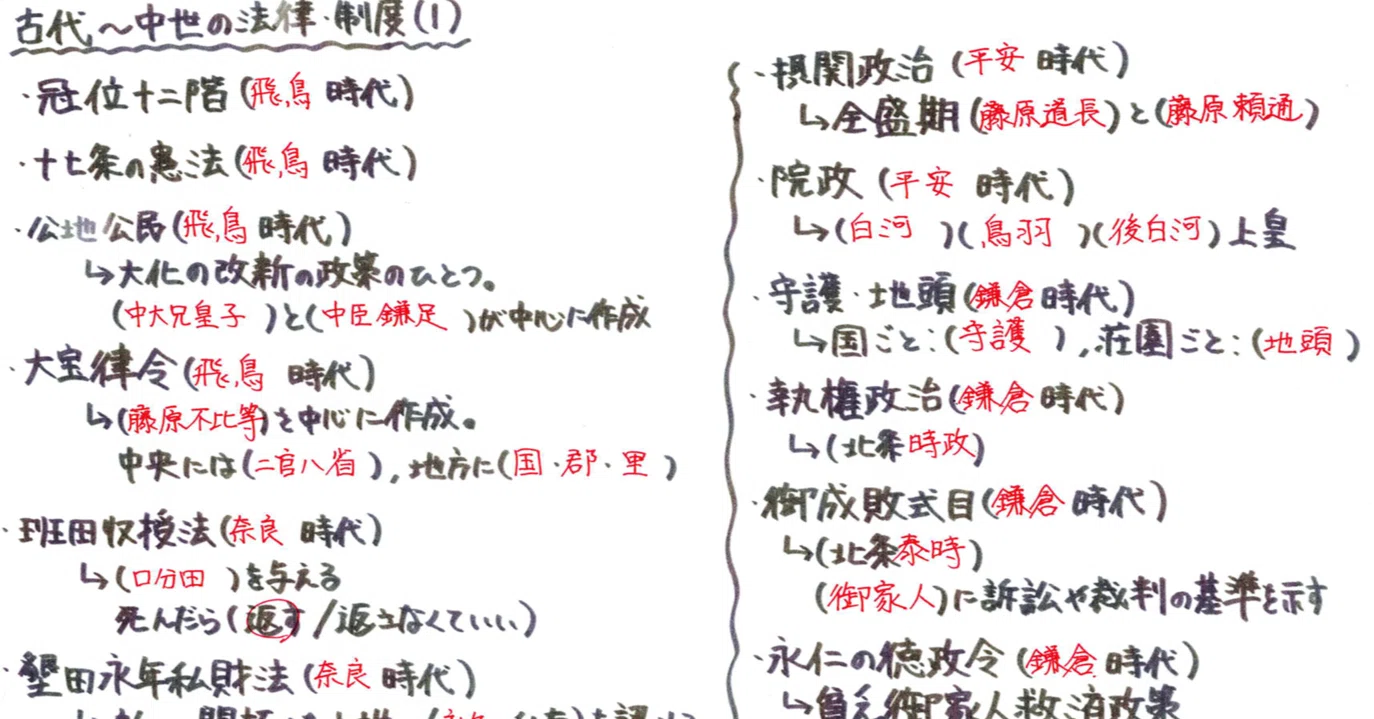 古代～中世の法律・制度(1)
・冠位十二階(飛鳥 時代)
・十七条の憲法(飛鳥 時代)
・公地公民(飛鳥 時代)
↳大化の改新の政策のひとつ。
(中大兄皇子 )と(中臣鎌足 )が中心に作成
・大宝律令(飛鳥 時代)
↳(藤原不比等)を中心に作成。
中央には(二官八省 ),地方に(国・郡・里 )
・班田収授法(奈良 時代)
↳(口分田 )を与える
死んだら(返す/返さなくていい)
・墾田永年私財法(奈良 時代)
・摂関政治(平安 時代)
↳全盛期(藤原道長)と(藤原頼通)
・院政(平安 時代)
↳(白河 )(鳥羽 )(後白河)上皇
・守護・地頭(鎌倉時代)
↳国ごと:(守護 ),荘園ごと:(地頭 )
・執権政治(鎌倉時代)
↳(北条時政)
・御成敗式目(鎌倉 時代)
↳(北条泰時)
(御家人)に訴訟や裁判の基準を示す
・永仁の徳政令(鎌倉 時代)
↳貧乏御家人救済政策